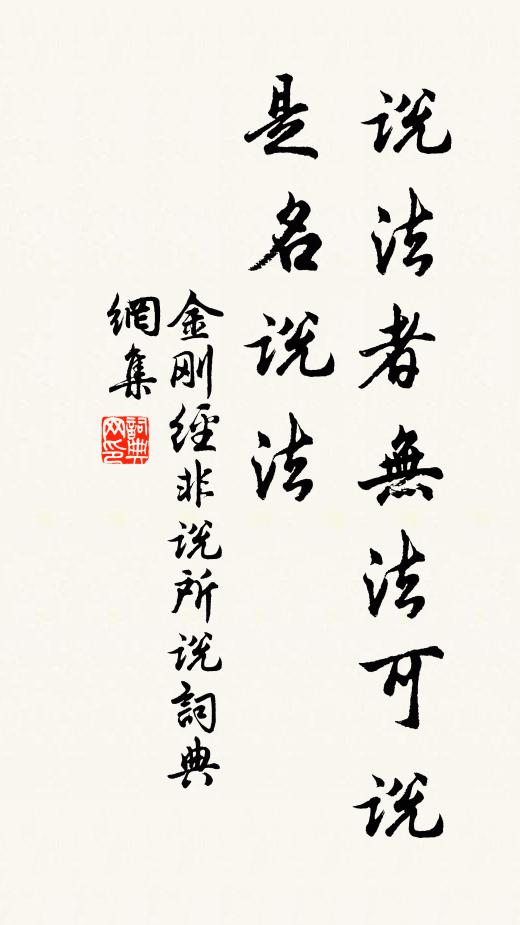 说法者無法可说
是名说法
金剛經非说所说詞典
網集
詞典網印